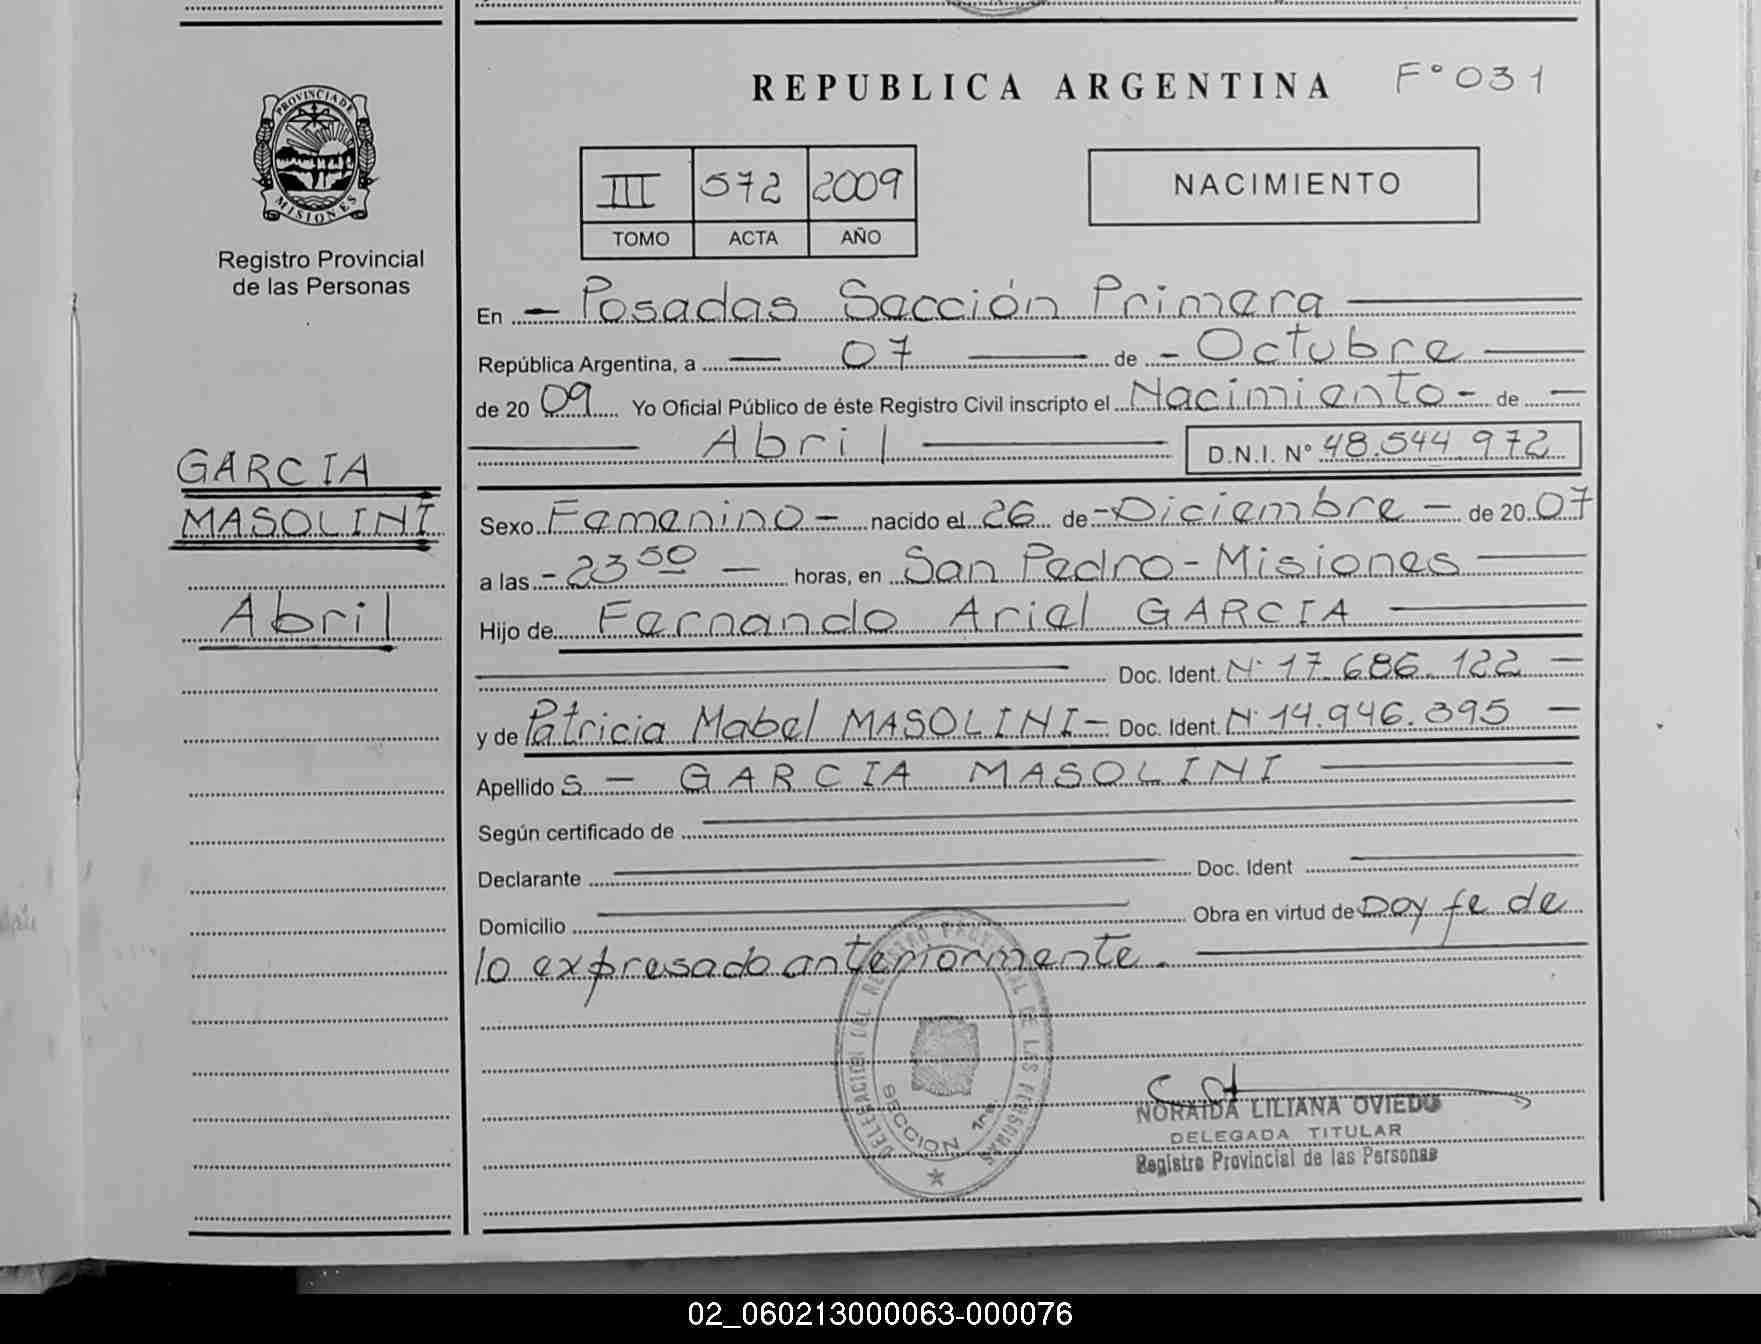 REPUBLICA ARGENTINA F° 031
PROVINCIA DE MISIONES
Registro Provincial
de las Personas
III 572 2009
TOMO ACTA AÑO
NACIMIENTO
En - Posadas Sección Primera
República Argentina, a - 07 - de - Octubre
de 20 09 Yo Oficial Público de éste Registro Civil inscripto el Nacimiento - de -
Abril D.N.I. N° 48.544.972
GARCIA
MASOLINI
Abril
Sexo Femenino - nacido el 26 de - Diciembre - de 20 07
a las - 23 50 - horas, en San Pedro - Misiones
Hijo de Fernando Ariel GARCIA
Doc. Ident. N° 17.686.122 -
y de Patricia Mabel MASOLINI - Doc. Ident. N° 14.946.395 -
Apellido s - GARCIA MASOLINI
Según certificado de
Declarante Doc. Ident
Domicilio Obra en virtud de Doy fe de
lo expresado anteriormente.
DELEGACION DEL REGISTRO PROVINCIAL DE LAS PERSONAS
SECCION 1ra.
NORAIDA LILIANA OVIEDO
DELEGADA TITULAR
Registro Provincial de las Personas
02_060213000063-000076